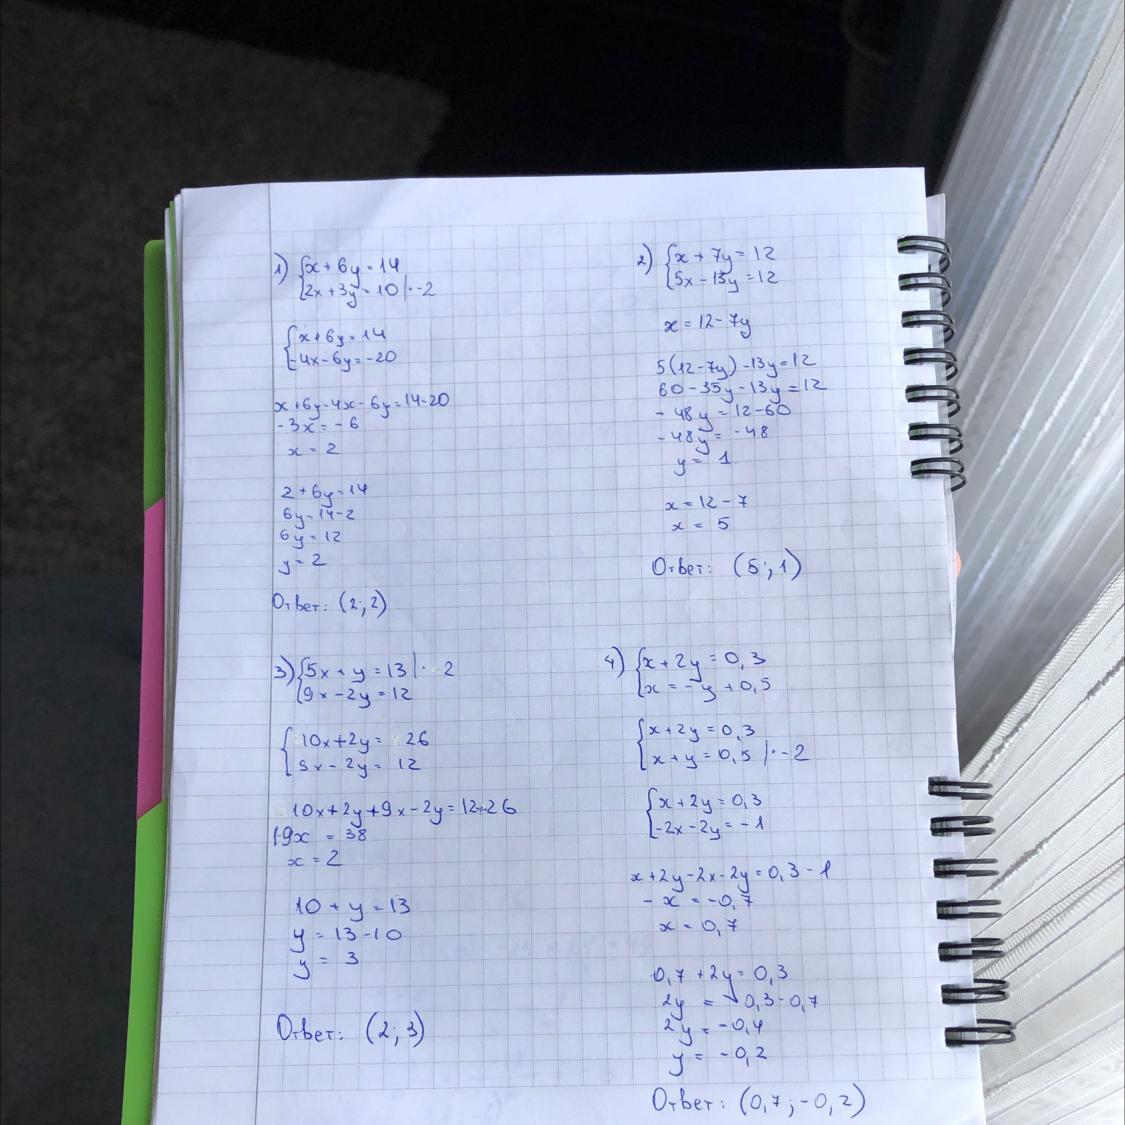 1) {x + 6y = 14
{2x + 3y = 10 | · -2
{x + 6y = 14
{-4x - 6y = -20
x + 6y - 4x - 6y = 14 - 20
-3x = -6
x = 2
2 + 6y = 14
6y = 14 - 2
6y = 12
y = 2
Ответ: (2; 2)
2) {x + 7y = 12
{5x - 13y = 12
x = 12 - 7y
5(12 - 7y) - 13y = 12
60 - 35y - 13y = 12
-48y = 12 - 60
-48y = -48
y = 1
x = 12 - 7
x = 5
Ответ: (5; 1)
3) {5x + y = 13 | · 2
{9x - 2y = 12
{10x + 2y = 26
{9x - 2y = 12
10x + 2y + 9x - 2y = 12 + 26
19x = 38
x = 2
10 + y = 13
y = 13 - 10
y = 3
Ответ: (2; 3)
4) {x + 2y = 0,3
{x = -y + 0,5
{x + 2y = 0,3
{x + y = 0,5 | · -2
{x + 2y = 0,3
{-2x - 2y = -1
x + 2y - 2x - 2y = 0,3 - 1
-x = -0,7
x = 0,7
0,7 + 2y = 0,3
2y = 0,3 - 0,7
2y = -0,4
y = -0,2
Ответ: (0,7; -0,2)